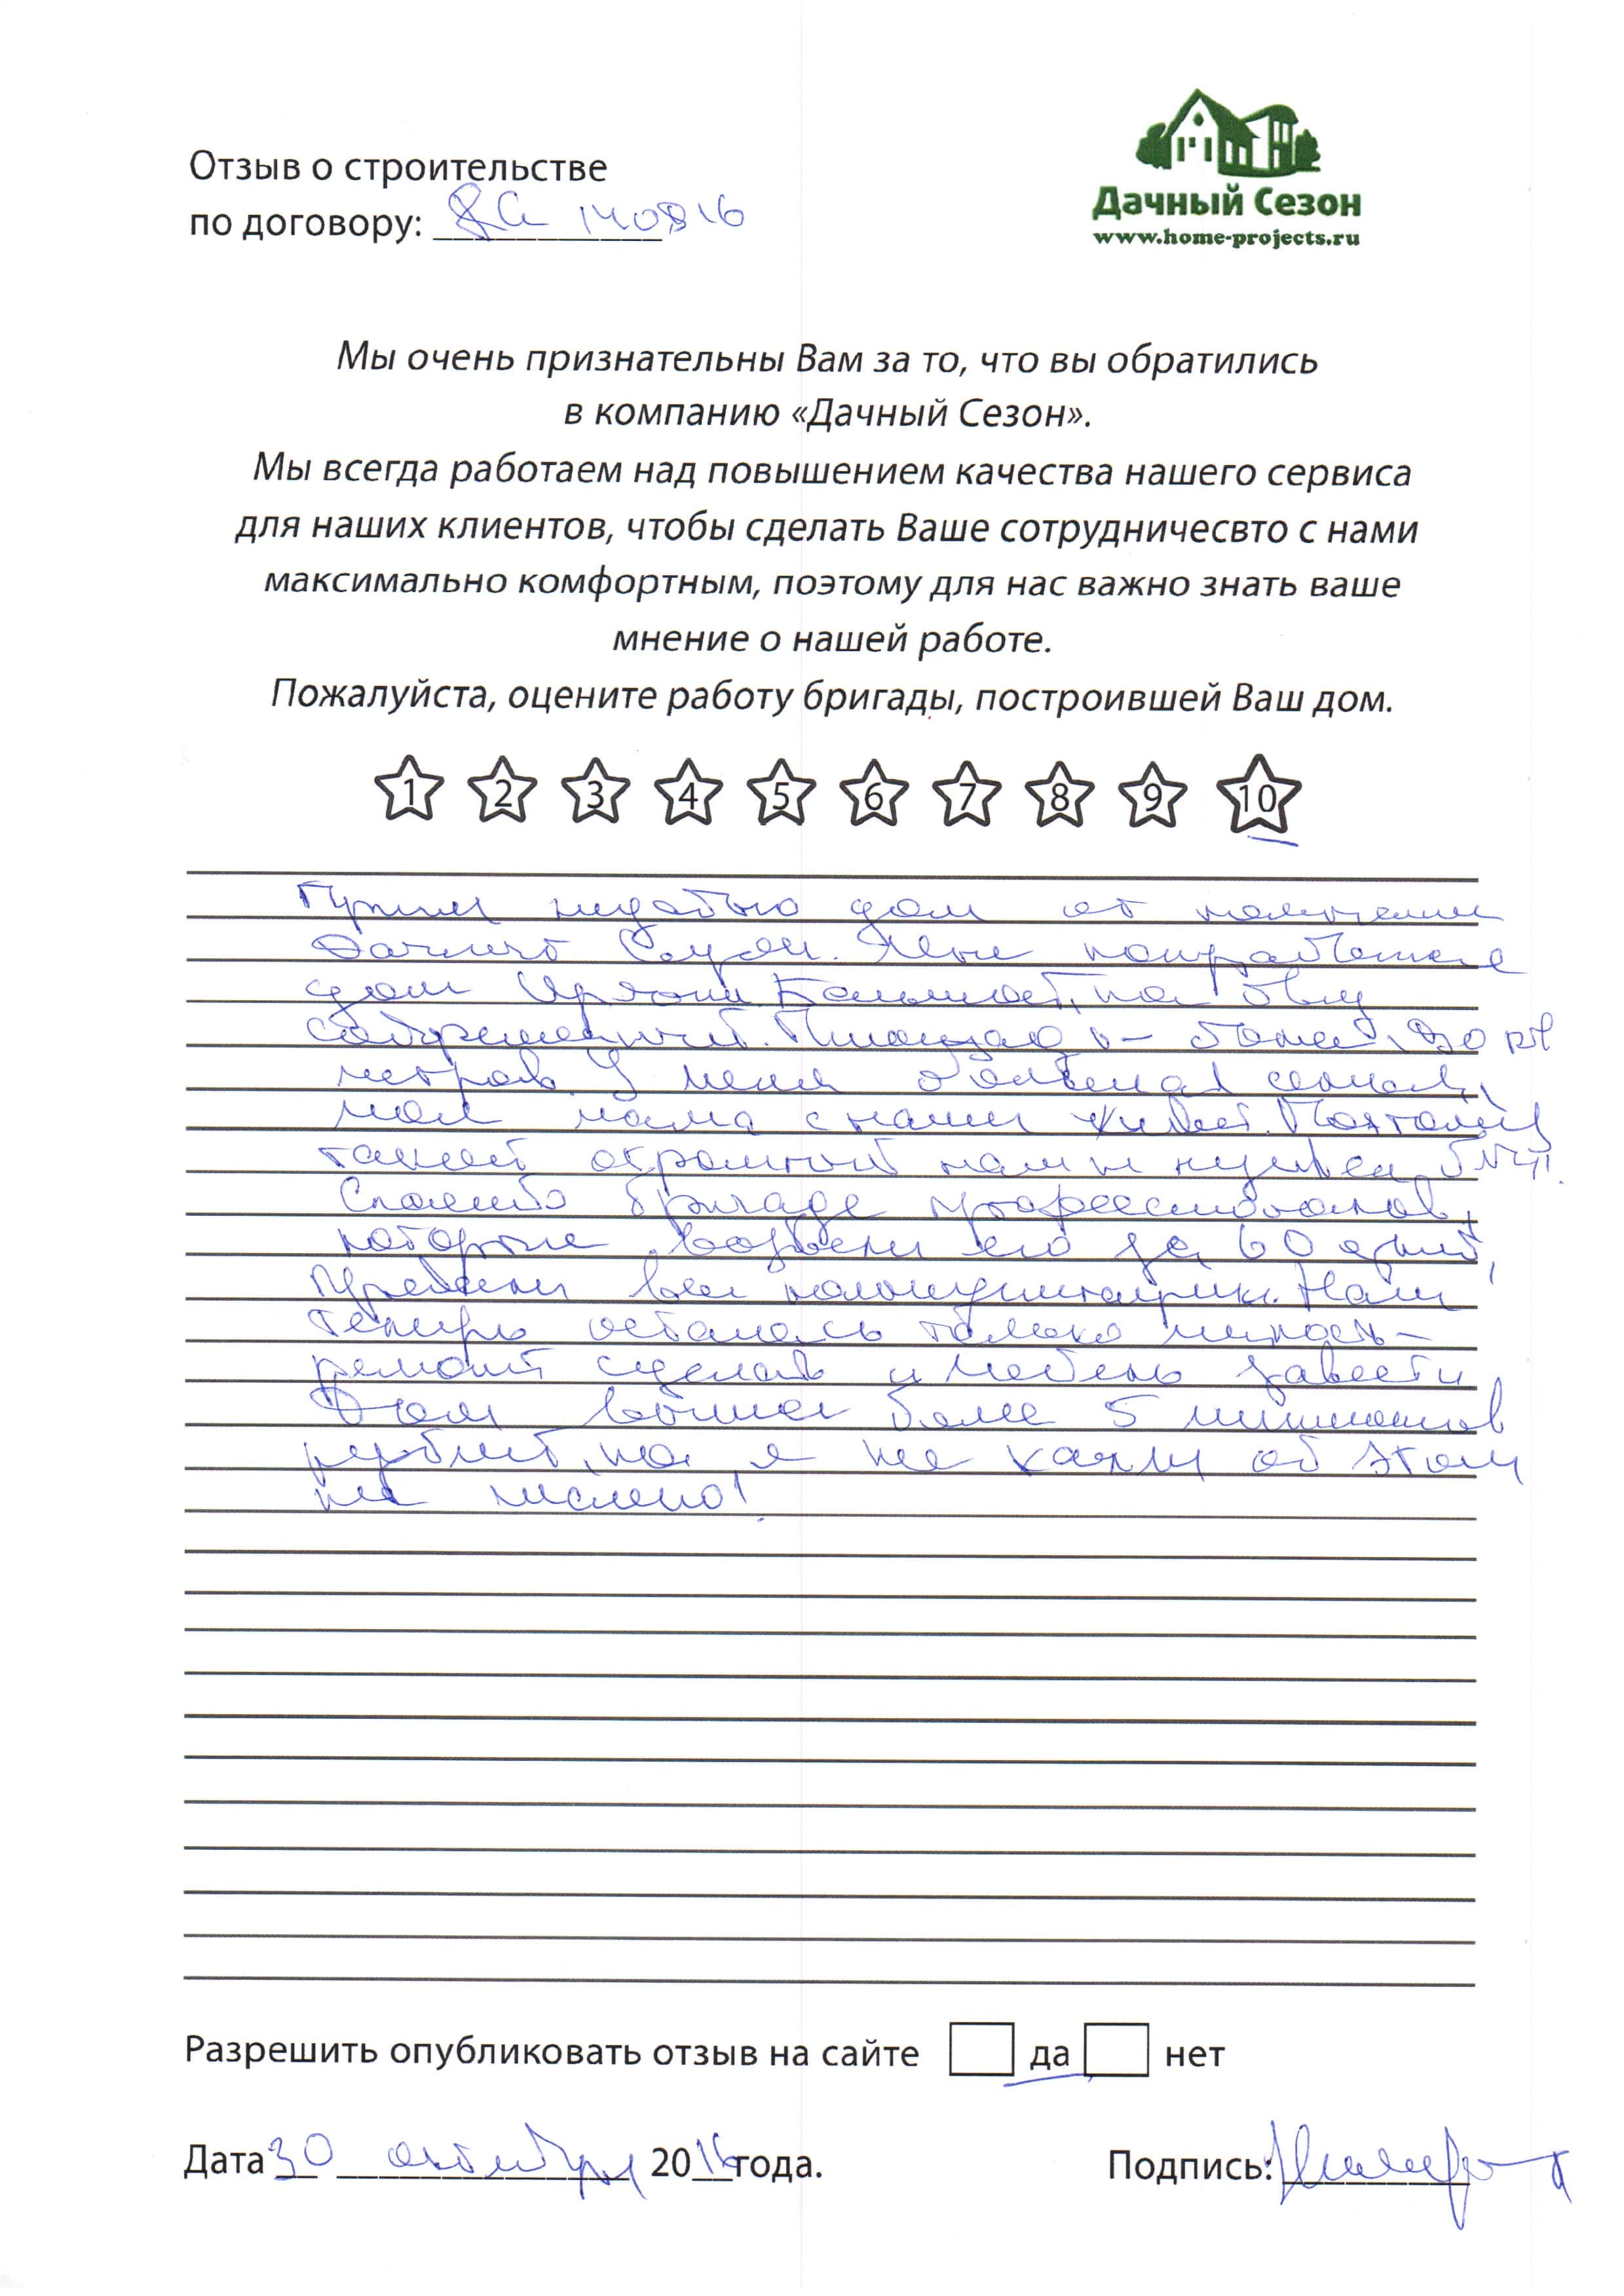 Отзыв о строительстве
по договору: ДС 140816
Дачный Сезон
www.home-projects.ru
Мы очень признательны Вам за то, что вы обратились
в компанию «Дачный Сезон».
Мы всегда работаем над повышением качества нашего сервиса
для наших клиентов, чтобы сделать Ваше сотрудничесвто с нами
максимально комфортным, поэтому для нас важно знать ваше
мнение о нашей работе.
Пожалуйста, оцените работу бригады, построившей Ваш дом.
1 2 3 4 5 6 7 8 9 10
Купили недавно дом от компании
Дачный Сезон. Мне понравился
дом Большой, на
современный. Площадь – более кв
метров У меня большая семья,
моя мама с нами живет. Поэтому
такой огромный нам и нужен был.
Спасибо бригаде профессионалов,
которые возвели его за 60 дней,
Провели все коммуникации. Нам
теперь осталось только мелочь –
ремонт сделать и мебель завести
Дом вышел более 5 миллионов
рублей, но я не жалею об этом
не
Разрешить опубликовать отзыв на сайте да нет
Дата 30 октября 2016 года. Подпись: